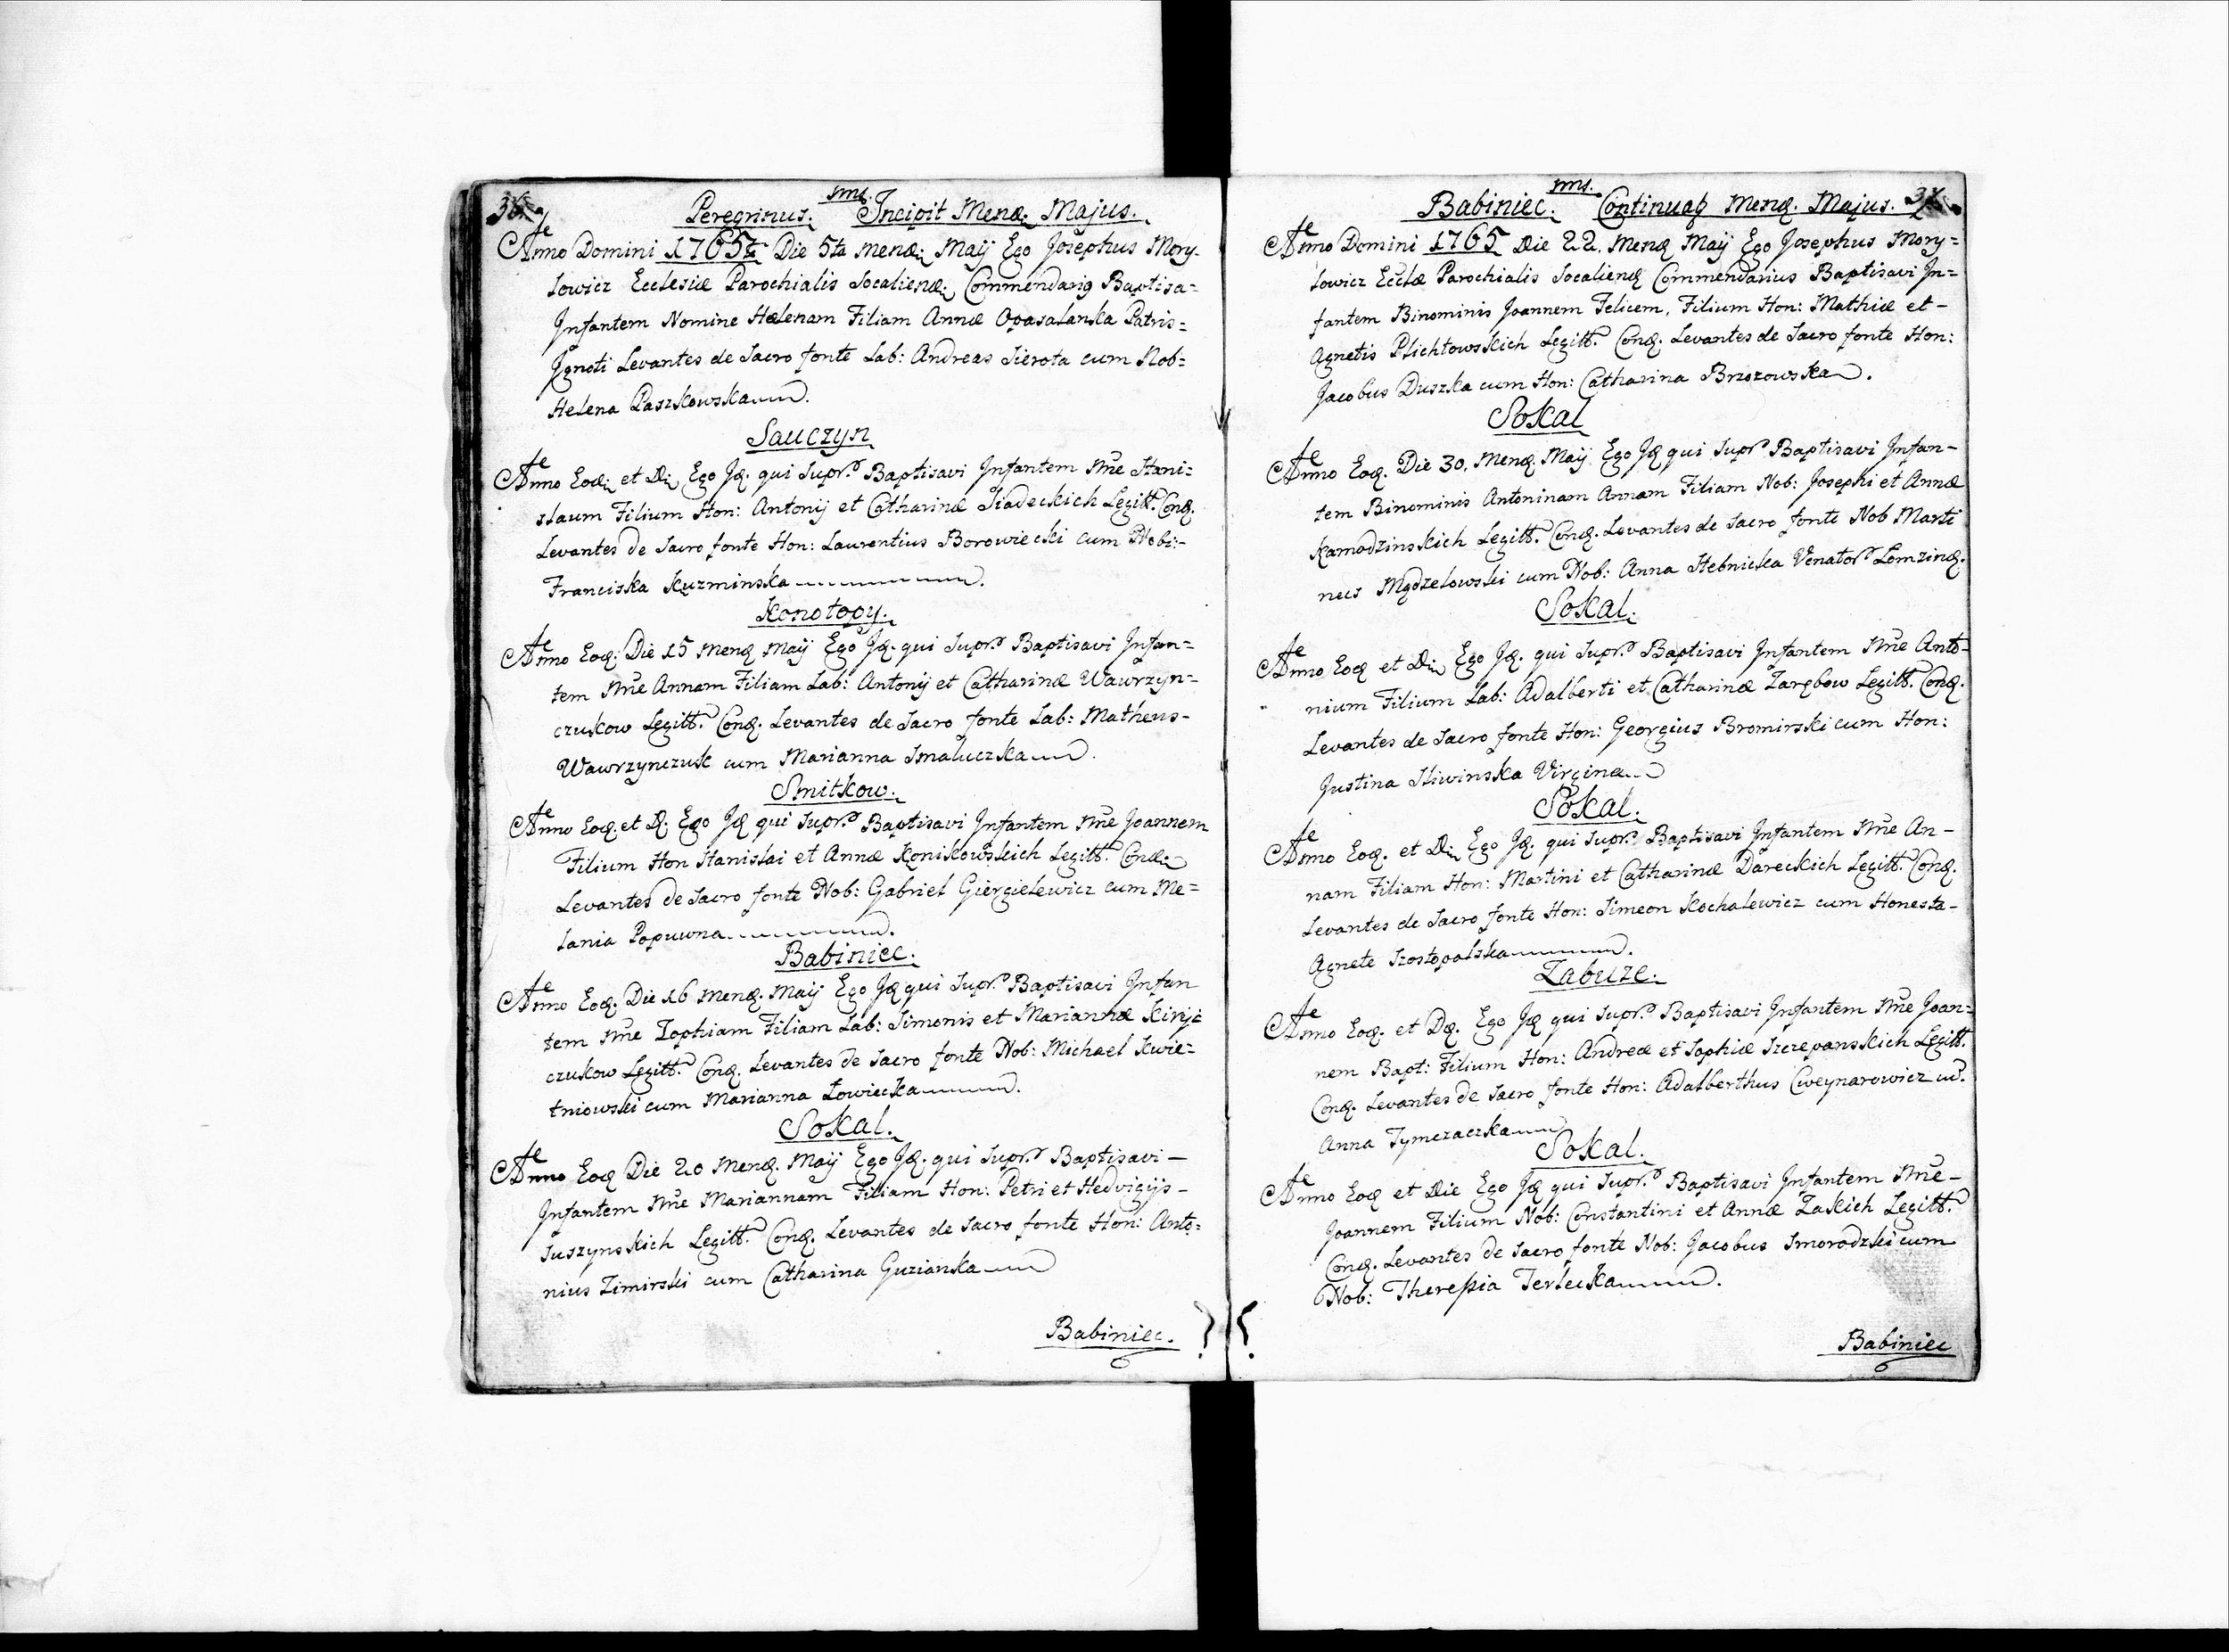 Peregrinus. Incipit Mens. Majus.
Anno Domini 1765 Die 5ta mens. Maij Ego Josephus Mory-
lowicz Ecclesiæ Parochialis Socaliens. Commendarig Baptisa-
Infantem Nomine Helenam Filiam Annæ Opasalanska Patris=
Ignoti Levantes de Sacro fonte Lab: Andreas Sierota cum Nob=
Helena Paszkowska.
Sauczyn
Anno Eod. et D. Ego Jd. qui Supr. Baptisavi Infantem Nne Stani=
slaum Filium Hon: Antonij et Catharinæ Siadeckich Legitt. Cong.
Levantes de Sacro fonte Hon: Laurentius Borowiecki cum Nobi:-
Franciska Kuzminska.
Konotopy.
Anno Eod. Die 15 Mens Maij Ego Jd. qui Supr. Baptisavi Infan=
tem Nne Annam Filiam Lab: Antonij et Catharinæ Wawrzyn=
czukow Legitt. Cong. Levantes de Sacro fonte Lab: Matheus-
Wawrzynczuk cum Marianna Smaluczka.
Smitkow.
Anno Eod. et D. Ego Jd qui Supr. Baptisavi Infantem Nne Joannem
Filium Hon Stanislai et Annæ Konikowskich Legitt. Cong.
Levantes de Sacro fonte Nob: Gabriel Giergielewicz cum Me=
lania Popuwna.
Babiniec.
Anno Eod. Die 16 Mens. Maij Ego Jd qui Supr. Baptisavi Infan
tem Nne Zophiam Filiam Lab: Simonis et Mariannæ Kirij=
czukow Legitt. Cong. Levantes de Sacro fonte Nob: Michael Kwie=
tniowski cum Marianna Łowiecka.
Sokal.
Anno Eod Die 20 Mens. Maij Ego Jd. qui Supr. Baptisavi-
Infantem Nne Mariannam Filiam Hon: Petri et Hedvigijs-
Suszynskich Legitt. Cong. Levantes de Sacro fonte Hon: Anto=
nius Zimirski cum Catharina Guzianka
Babiniec.
Babiniec. Continuag Mens. Majus.
Anno Domini 1765 Die 22. Mens Maij Ego Josephus Mory=
lowicz Ecclæ Parochialis Socaliens Commendarius Baptisavi In=
fantem Binominis Joannem Felicem, Filium Hon: Mathiæ et-
Agnetis Plichtowskich Legitt. Cong. Levantes de Sacro fonte Hon:
Jacobus Duszka cum Hon: Catharina Brzozowska.
Sokal
Anno Eod. Die 30. Mens. Maij Ego Jd qui Supr Baptisavi Infan-
tem Binominis Antoninam Annam Filiam Nob: Josephi et Annæ
Kamodzinskich Legitt. Cong. Levantes de Sacro fonte Nob Marti
nus Mądzelowski cum Nob: Anna Stebnicka Venator Lomzins.
Sokal.
Anno Eod et D. Ego Jd. qui Supr. Baptisavi Infantem Nne Anto-
nium Filium Lab: Adalberti et Catharinæ Zarębow Legitt. Cong.
Levantes de Sacro fonte Hon: Georgius Bromirski cum Hon:
Justina Sliwinska Virgine
Sokal.
Anno Eod. et D. Ego Jd. qui Supr. Baptisavi Infantem Nne An-
nam Filiam Hon: Martini et Catharinæ Dareckich Legitt. Cong.
Levantes de Sacro fonte Hon: Simeon Kochalewicz cum Honesta-
Agnete Szostopalska.
Zabuze.
Anno Eod. et D. Ego Jd qui Supr. Baptisavi Infantem Nne Joan=
nem Bapt: Filium Hon: Andreæ et Sophiæ Szczepanskich Legitt.
Cong. Levantes de Sacro fonte Hon: Adalberthus Cweynarowicz cu.
Anna Tymczaczka
Sokal.
Anno Eod et Die Ego Jd qui Supr. Baptisavi Infantem Nne-
Joannem Filium Nob: Constantini et Annæ Zakich Legitt.
Cong. Levantes de Sacro fonte Nob: Jacobus Smorodzki cum
Nob: Theressia Terlecka.
Babiniec